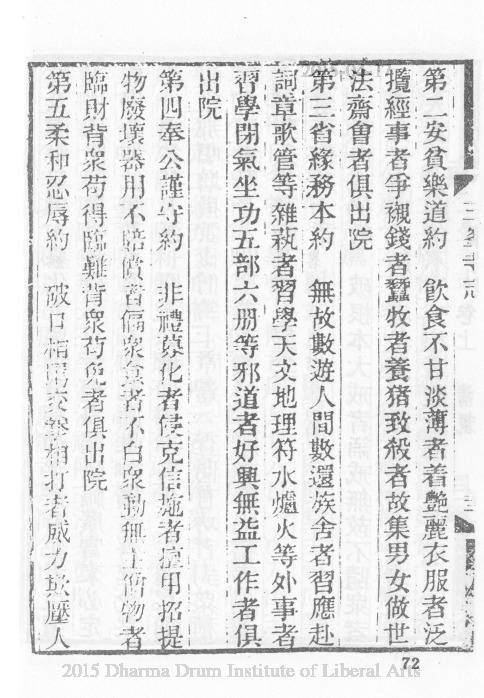 第二安貧樂道約　飲食不甘淡薄者着艷麗衣服者泛
攬經事者爭襯錢者蠶牧者養猪致殺者故集男女做世
法齋會者俱出院
第三省緣務本約　無故數遊人間數還族舍者習應赴
詞章歌管等雜藝者習學天文地理符水爐火等外事者
習學閉氣坐功五部六册等邪道者好興無益工作者俱
出院
第四奉公謹守約　非禮募化者侵克信施者擅用招提
物廢壞器用不賠償者偏衆食者不白衆動無主僧物者
臨財背衆苟得臨難背衆苟免者俱出院
第五柔和忍辱約　破口相罵交拳相打者威力欺壓人
卷上
72
2015 Dharma Drum Institute of Liberal Arts